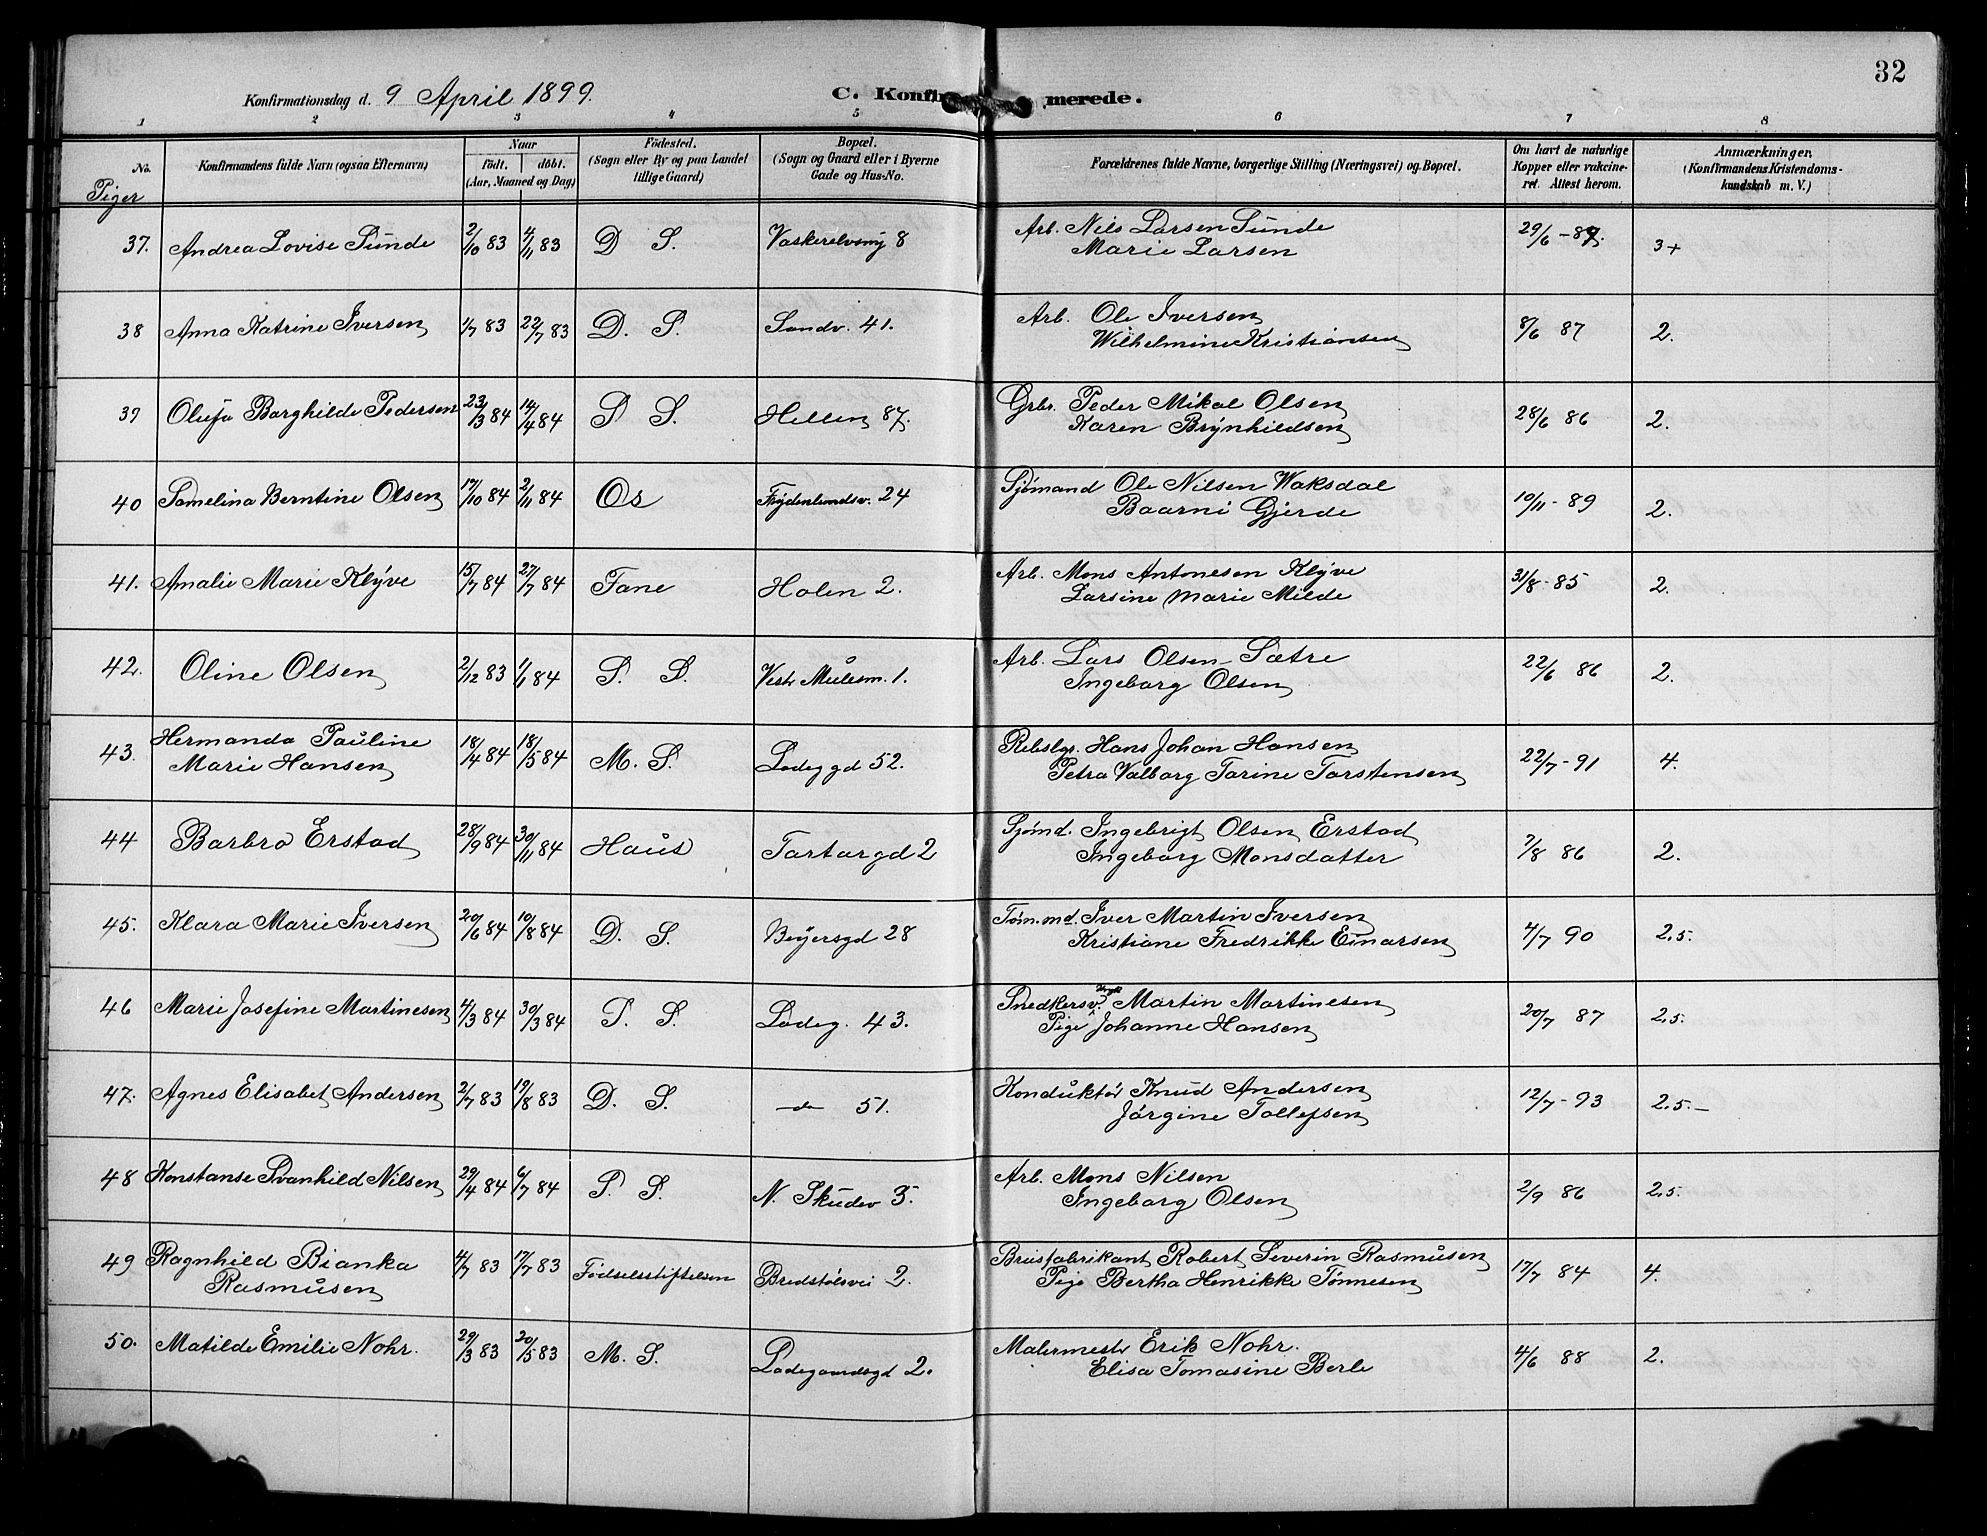 32
Konfirmationsdag d. 9 April 1899.
C. Konfir merede.
1 2 3 4 5 6 7 8
No. Konfirmandens fulde Navn (ogsaa Efternavn) Naar födt. döbt. (Aar, Maaned og Dag) Födested. (Sogn eller By og paa Landet tillige Gaard) Bopæl. (Sogn og Gaard eller i Byerne Gade og Hus-No. Forældrenes fulde Navne, borgerlige Stilling (Næringsvei) og Bopæl. Om havt de naturlige Kopper eller vakcineret. Attest herom. Anmærkninger, (Konfirmandens Kristendomskundskab m. V.)
Piger
37. Andrea Lovise Sunde 2/10 83 4/11 83 D S. Vaskerelvsmg 8 Arb. Nils Larsen Sunde 29/6 - 87. 3+
Marie Larsen
38 Anna Katrine Iversen 1/7 83 22/7 83 D. S. Sandv. 41. Arb. Ole Iversen 8/6 87 2.
Wilhelmine Kristiansen
39 Olufa Borghilde Pedersen 23/3 84 14/4 84 S S. Hellen 87. Grbr. Peder Mikal Olsen 28/6 86 2.
Karen Brynhildsen
40 Samelina Berntine Olsen 17/10 84 2/11 84 Os Frydenlundsv. 24 Sjømand Ole Nilsen Waksdal 10/11 - 89 2.
Baarni Gjerde
41. Amalie Marie Klyve 15/7 84 27/7 84 Fane Holen 2. Arb. Mons Antonesen Klyve 31/8 - 85 2.
Larsine Marie Milde
42. Oline Olsen 2/12 83 1/1 84 S. S. Vestr Mulesm. 1. Arb. Lars Olsen Sætre 22/6 86 2.
Ingeborg Olsen
43. Hermanda Pauline 18/4 84 18/5 84 M. S. Ladeggd 52. Rebslgr. Hans Johan Hansen 22/7 - 91 4.
Marie Hansen Petra Valborg Tarine Torstensen
44 Barbro Erstad 28/9 84 30/11 84 Haus Tartargd 2 Sjømd. Ingebrigt Olsen Erstad 7/8 86 2.
Ingeborg Monsdatter
45. Klara Marie Iversen 20/6 84 10/8 84 D. S. Beyersgd 28 Tøm.md. Iver Martin Iversen 4/7 90 2,5.
Kristiane Fredrikke Einarsen
46 Marie Josefine Martinesen 4/3 84 30/3 84 S. S. Ladeg. 43. Snedkersv. Martin Martinesen 20/7 87 2,5.
Pige Johanne Hansen
47. Agnes Elisabet Andersen 2/7 83 19/8 83 D. S. — do 51. Konduktør Knud Andersen 12/7 - 93 2,5.—
Jørgine Tollefsen
48 Konstanse Svanhild Nilsen 29/4 84 6/7 84 S. S. N. Skudev 5. Arb. Mons Nilsen 2/9 86 2,5.
Ingeborg Olsen
49 Ragnhild Bianka 4/7 83 17/7 83 Fødselsstiftelsen Bredstølsvei 2. Brusfabrikant Robert Severin Rasmusen 17/7 84 4.
Rasmusen Pige Bertha Henrikke Tønnesen
50. Matilde Emilie Nohr. 29/3 83 20/5 83 M. S. Ladegaardsgd 2. Malermestr Erik Nohr. 4/6 88 2.
Elisa Tomasine Berle